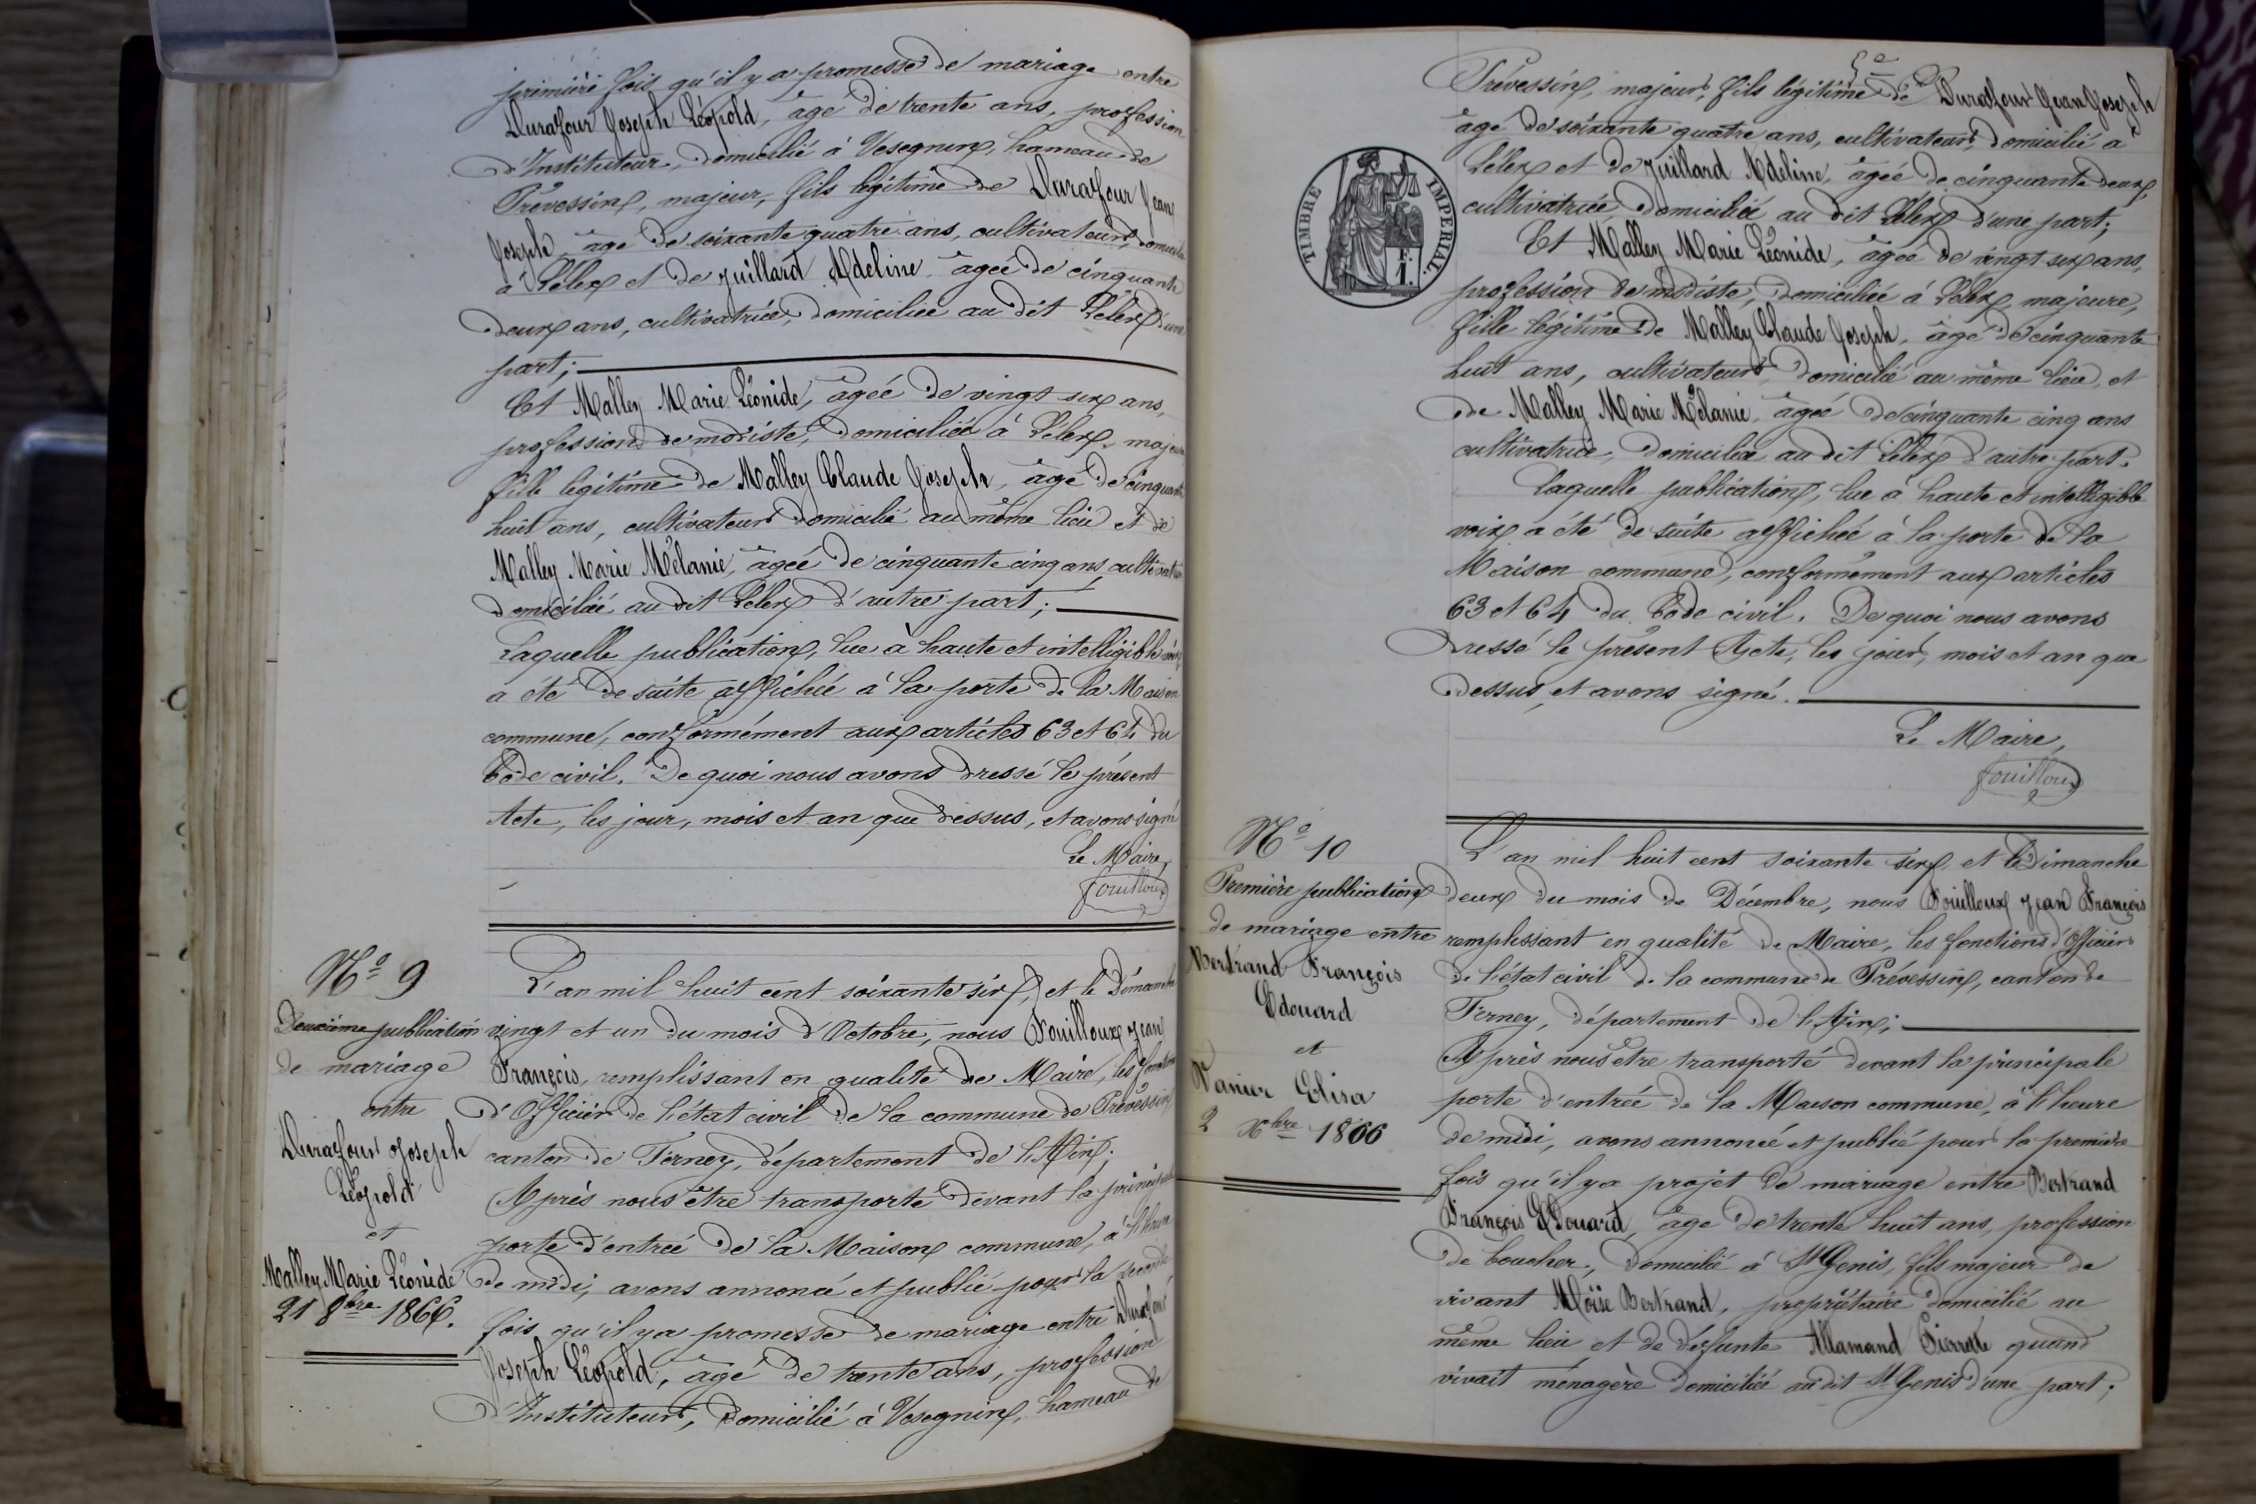 première fois qu'il y a promesse de mariage entre
Durafour Joseph Léopold, âgé de trente ans, profession
d'Instituteur, domicilié à Vesegnin, hameau de
Prévessin, majeur, fils légitime de Durafour Jean
Joseph, âgé de soixante quatre ans, cultivateur, domicilié
à Lélex et de Juillard Adeline, âgée de cinquante
deux ans, cultivatrice, domiciliée au dit Lélex d'une
part;
Et Malley Marie Léonide, âgée de vingt six ans,
profession de modiste, domiciliée à Lélex, majeure
fille légitime de Malley Claude Joseph, âgé de cinquante
huit ans, cultivateur domicilié au même lieu et de
Malley Marie Mélanie, âgée de cinquante cinq ans, cultivatrice
domiciliée au dit Lélex d'autre part;
Laquelle publication, lue à haute et intelligible voix
a été de suite affichée à la porte de la Maison
commune, conformément aux articles 63 et 64 du
Code civil. De quoi nous avons dressé le présent
Acte, les jour, mois et an que dessus, et avons signé
Le Maire,
Fouilloux
No 9
Deuxième publication
de mariage
entre
Durafour Joseph
Léopold
et
Malley Marie Léonide
21 8bre 1866.
L'an mil huit cent soixante six, et le Dimanche
vingt et un du mois d'Octobre, nous Fouilloux Jean
François, remplissant en qualité de Maire, les fonctions
d'Officier de l'état civil de la commune de Prévessin
canton de Ferney, département de l'Ain;
Après nous être transporté devant la principale
porte d'entrée de la Maison commune, à l'heure
de midi, avons annoncé et publié pour la seconde
fois qu'il y a promesse de mariage entre Durafour
Joseph Léopold, âgé de trente ans, profession
d'Instituteur, domicilié à Vesegnin, hameau de
5e
Prévessin, majeur, fils légitime de Durafour Jean Joseph
âgé de soixante quatre ans, cultivateur, domicilié à
Lélex et de Juillard Adeline, âgée de cinquante deux,
cultivatrice, domiciliée au dit Lélex d'une part;
Et Malley Marie Léonide, âgée de vingt six ans,
profession de modiste, domiciliée à Lélex, majeure,
fille légitime de Malley Claude Joseph, âgé de cinquante
huit ans, cultivateur domicilié au même lieu et
de Malley Marie Mélanie, âgée de cinquante cinq ans
cultivatrice, domiciliée au dit Lélex d'autre part.
Laquelle publication, lue à haute et intelligible
voix a été de suite affichée à la porte de la
Maison commune, conformément aux articles
63 et 64 du Code civil. De quoi nous avons
dressé le présent Acte, les jour, mois et an que
dessus, et avons signé.
Le Maire,
Fouilloux
TIMBRE IMPERIAL.
1 F.
No 10
Première publication
de mariage entre
Bertrand François
Edouard
et
Vanier Elisa
2 Xbre 1866
L'an mil huit cent soixante six, et le Dimanche
deux du mois de Décembre, nous Fouilloux Jean François
remplissant en qualité de Maire, les fonctions d'Officier
de l'état civil de la commune de Prévessin, canton de
Ferney, département de l'Ain;
Après nous être transporté devant la principale
porte d'entrée de la Maison commune, à l'heure
de midi, avons annoncé et publié pour la première
fois qu'il y a projet de mariage entre Bertrand
François Edouard, âgé de trente huit ans, profession
de boucher, domicilié à St Genis, fils majeur de
vivant Moïse Bertrand, propriétaire domicilié au
même lieu et de défunte Allamand Pierrette quand
vivait ménagère domiciliée au dit St Genis d'une part;